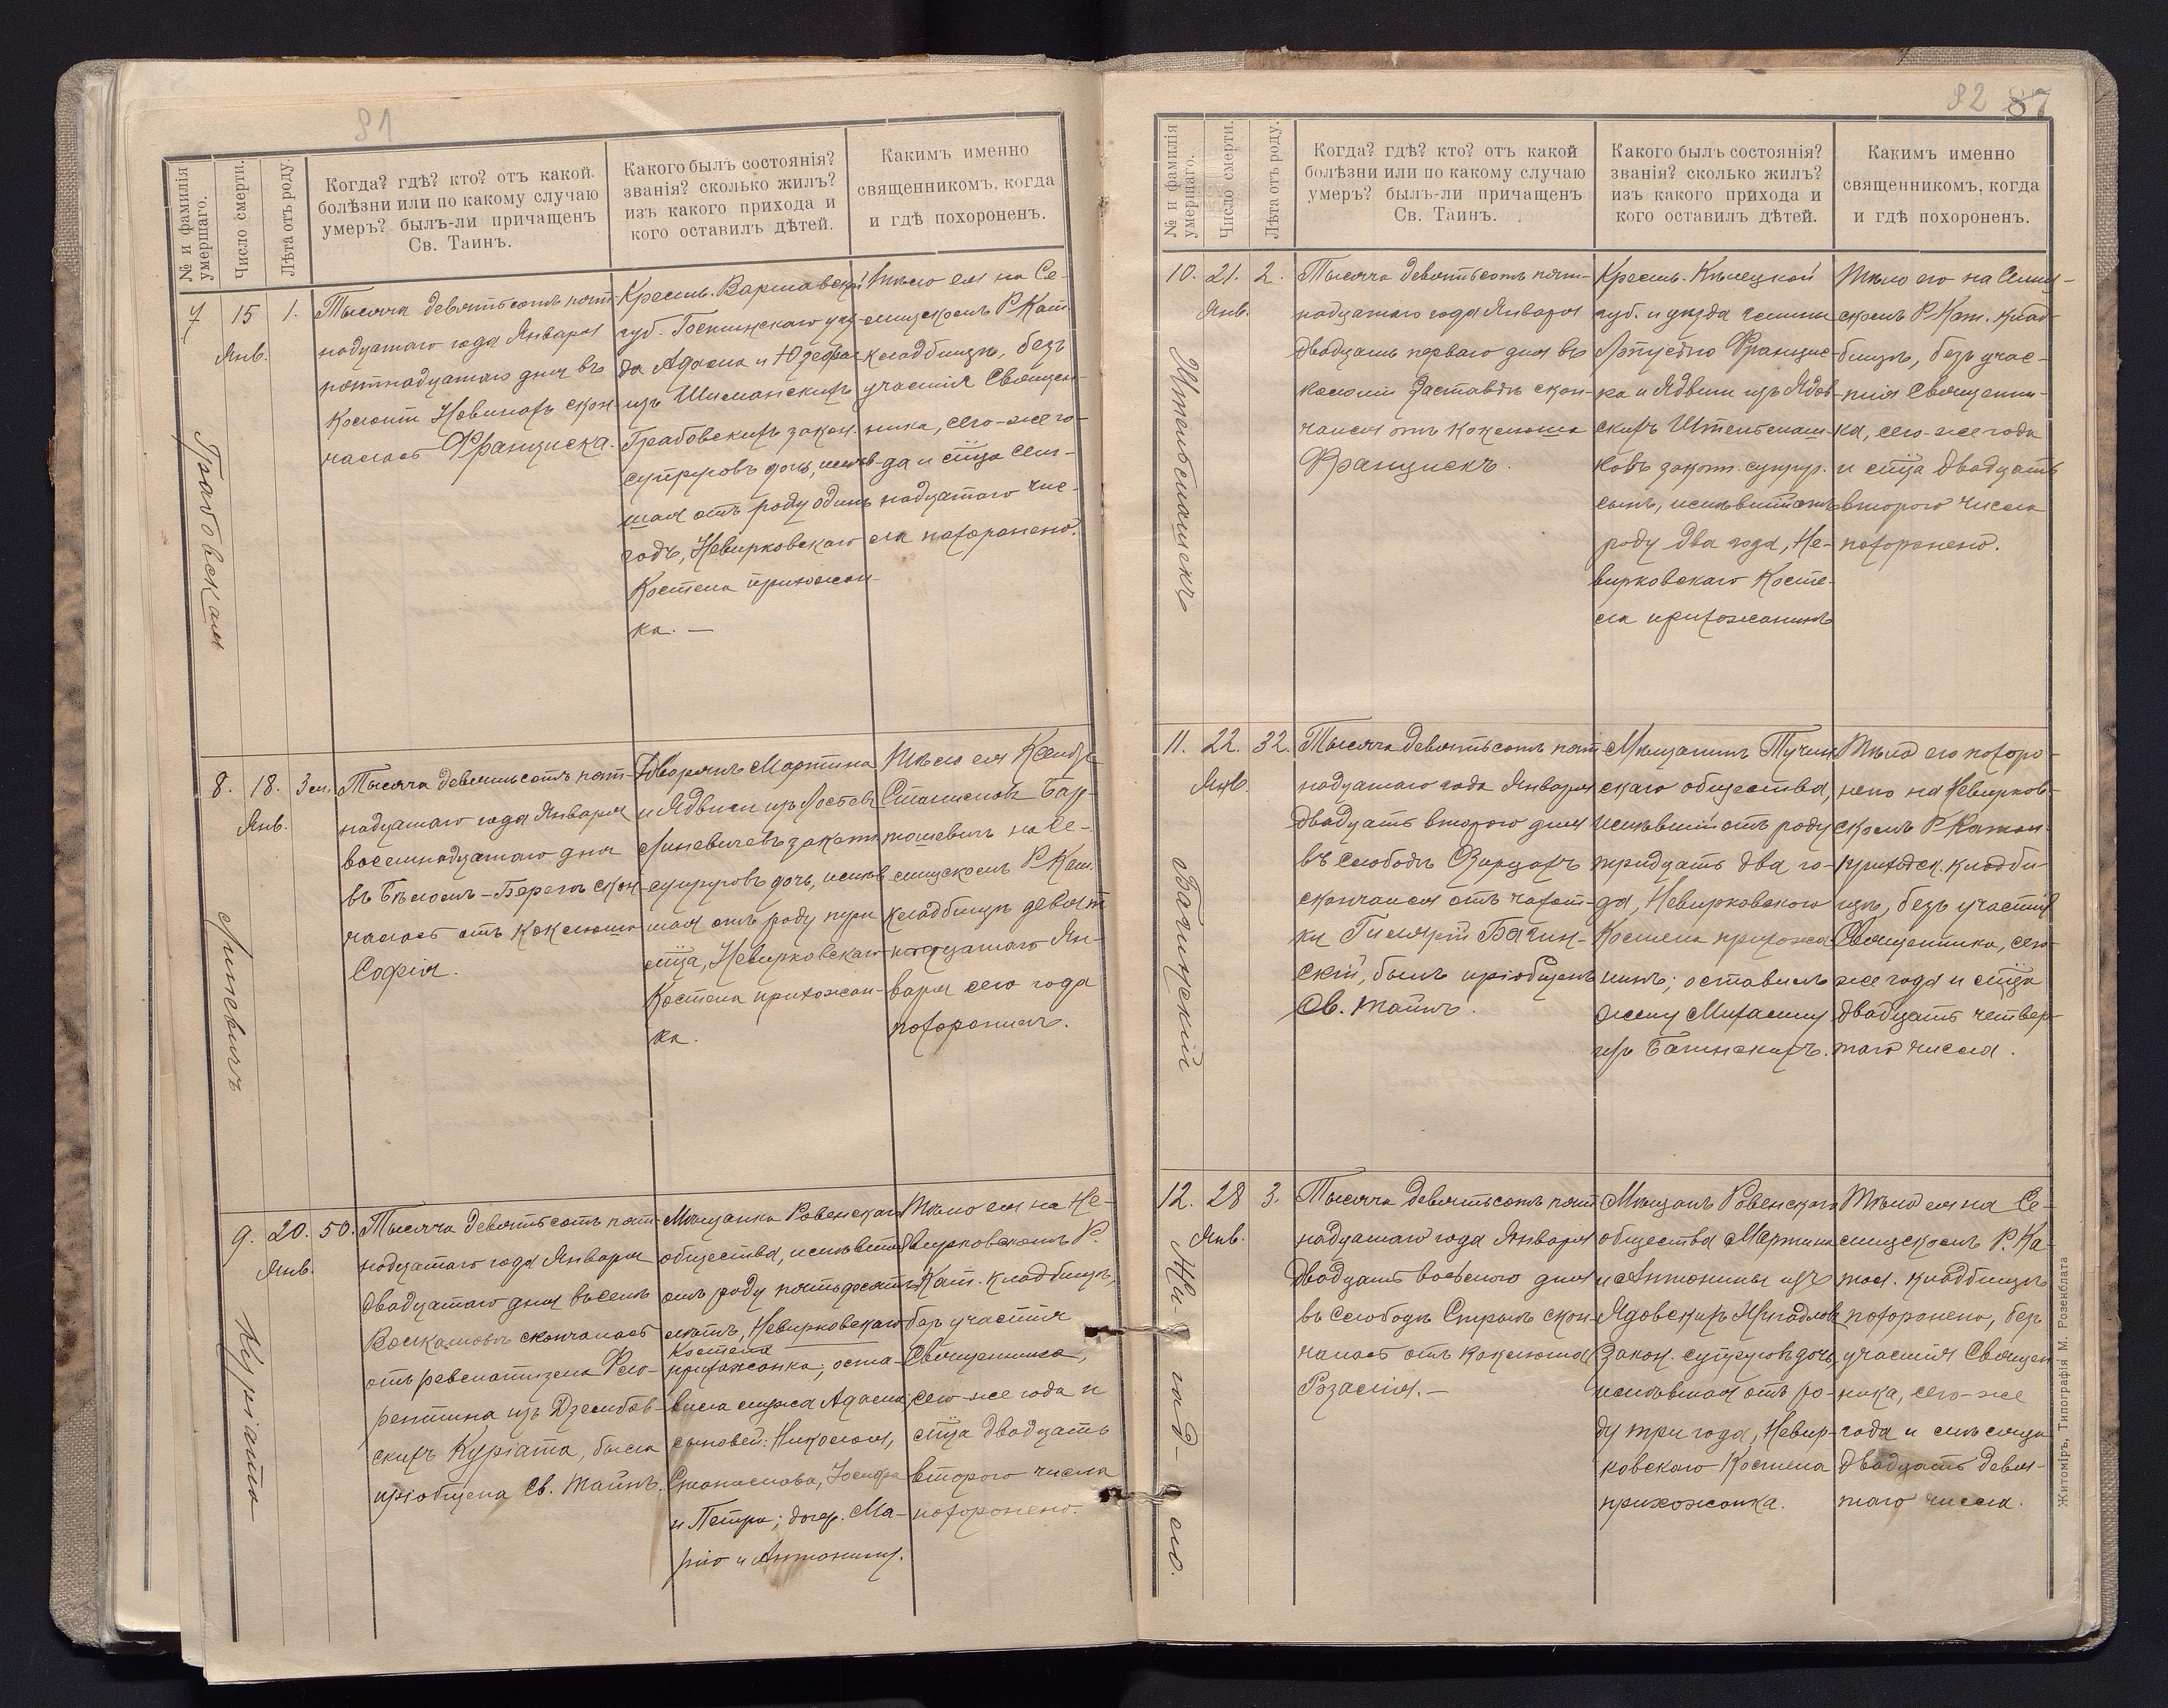 81
№ и фамилія умершаго.
Число смерти.
Лѣта отъ роду.
Когда? гдѣ? кто? отъ какой
болѣзни или по какому случаю
умеръ? былъ-ли причащенъ
Св. Таинъ.
Какого былъ состоянія?
званія? сколько жилъ?
изъ какого прихода и
кого оставилъ дѣтей.
Какимъ именно
священникомъ, когда
и гдѣ похороненъ.
7
15
Янв.
1.
Грабовская
Тысяча девятьсотъ пят-
надцатаго года Января
пятнадцатаго дня въ
колоніи Новинахъ скон-
чалась Франциска.
Крестьян. Варшавской
губ. Гостинскаго уѣз-
да Адама и Юзефы
изъ Шиманскихъ
Грабовскихъ закон.
супруговъ дочь, имѣв-
шая отъ роду одинъ
годъ, Невирковскаго
Костела прихожан-
ка. —
Тѣло ея на Се-
мицкомъ Р. Кат.
кладбищѣ, безъ
участія Священ-
ника, сего-же го-
да и м͠ца сем-
надцатаго чис-
ла похоронено.
8.
18.
Янв.
3 м.
Линевичъ
Тысяча девятьсотъ пят-
надцатаго года Января
восемнадцатаго дня
въ Бѣломъ-Берегѣ скон-
чалась отъ коклюша
Софія.
Дворянъ Мартина
и Ядвиги изъ
Линевичевъ законн.
супруговъ дочь, имѣв-
шая отъ роду три
м͠ца, Невирковскаго
Костела прихожан-
ка.
Тѣло ея Ксендзъ
Станиславъ Бар-
тошевичъ на Се-
мицкомъ Р. Кат.
кладбищѣ девят-
надцатаго Ян-
варя сего года
похоронилъ.
9.
20.
Янв.
50.
Куріата
Тысяча девятьсотъ пят-
надцатаго года Января
двадцатаго дня въ селѣ
скончалась
отъ ревматизма Фло-
рентина изъ Дзембов-
скихъ Куріата, была
пріобщена Св. Тайнъ.
Мѣщанка Ровенскаго
общества, имѣвшая
отъ роду пятьдесятъ
лѣтъ, Невирковскаго
Костела
прихожанка; оста-
вила мужа Адама
сыновей: Николая,
Станислава, Іосифа
и Петра; дочер. Ма-
рію и Антонину.
Тѣло ея на Не-
вирковскомъ Р.
Кат. кладбищѣ,
безъ участія
Священника,
сего-же года и
м͠ца двадцать
второго числа
похоронено.
82 87
№ и фамилія умершаго.
Число смерти.
Лѣта отъ роду.
Когда? гдѣ? кто? отъ какой
болѣзни или по какому случаю
умеръ? былъ-ли причащенъ
Св. Таинъ.
Какого былъ состоянія?
званія? сколько жилъ?
изъ какого прихода и
кого оставилъ дѣтей.
Какимъ именно
священникомъ, когда
и гдѣ похороненъ.
10.
21.
Янв.
2.
Штельмашекъ
Тысяча девятьсотъ пят-
надцатаго года Января
двадцать перваго дня въ
колоніи Заставье скон-
чался отъ коклюша
Францискъ.
Крестьян. Кѣлецкой
губ. и уѣзда гмины
Францис-
ка и Ядвиги изъ Ядов-
скихъ Штельмаш-
ковъ законн. супруг.
сынъ, имѣвшій отъ
роду два года, Не-
вирковскаго Косте-
ла прихожанинъ
Тѣло его на Семиц-
комъ Р. Кат. клад-
бищѣ, безъ учас-
тія Священни-
ка, сего-же года
и м͠ца двадцать
второго числа
похоронено.
11.
22.
Янв.
32.
Багинскій
Тысяча девятьсотъ пят-
надцатаго года Января
двадцать второго дня
въ слободѣ
скончался отъ чахот-
ки Гилярій Багин-
скій, былъ пріобщенъ
Св. Тайнъ.
Мѣщанинъ Тучин-
скаго общества,
имѣвшій отъ роду
тридцать два го-
да, Невирковскаго
Костела прихожа-
нинъ; оставилъ
жену Михалину
изъ Багинскихъ.
Тѣло его похоро-
нено на Невирков-
скомъ Р. Катол.
приходск. кладби-
щѣ, безъ участія
Священника, сего
же года и м͠ца
двадцать четвер-
таго числа.
12.
28
Янв.
3.
Тысяча девятьсотъ пят-
надцатаго года Января
двадцать восьмого дня
въ слободѣ скон-
чалась отъ коклюша
Розалія. —
Мѣщанъ Ровенскаго
общества Мартина
и Антонины изъ
Ядовскихъ
закон. супруговъ дочь,
имѣвшая отъ ро-
ду три года, Невир-
ковскаго Костела
прихожанка.
Тѣло ея на Се-
мицкомъ Р. Ка-
тол. кладбищѣ
похоронено, безъ
участія Священ-
ника, сего-же
года и мѣсяца
двадцать девя-
таго числа.
Житоміръ, Типографія М. Розенблата